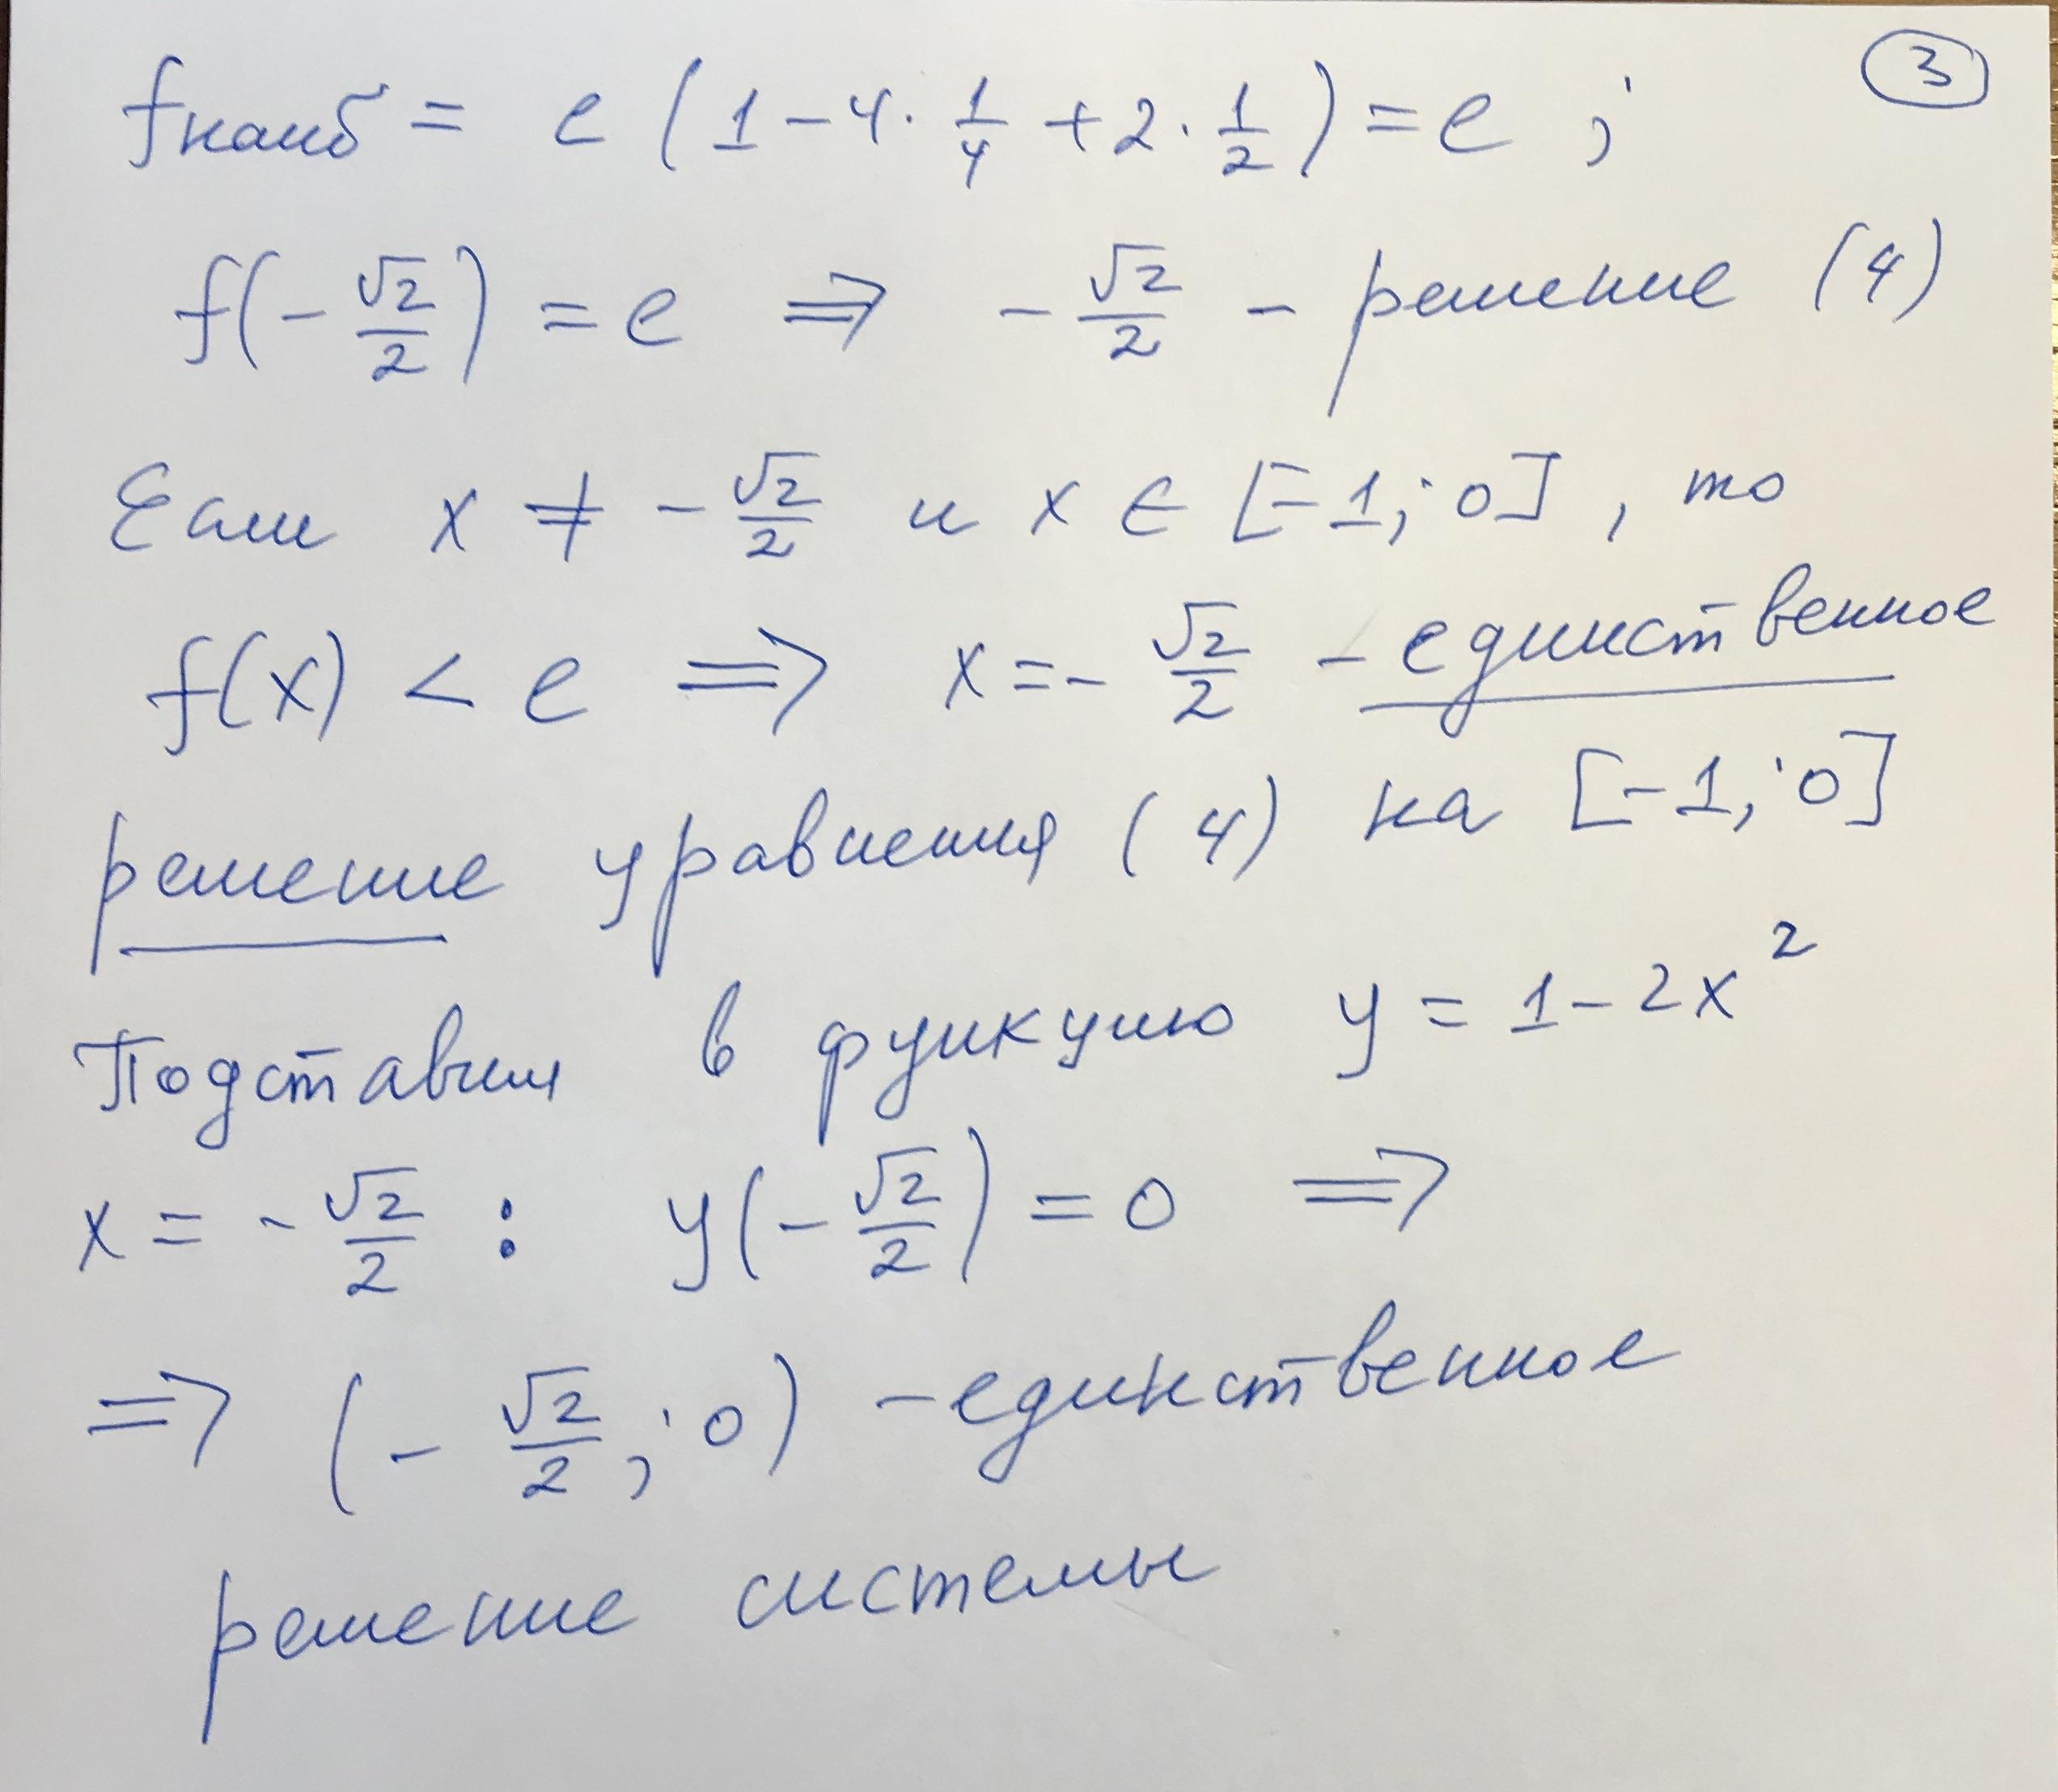 3
fнаиб = e (1 - 4 · 1/4 + 2 · 1/2) = e ;
f(-√2/2) = e ⇒ -√2/2 - решение (4)
Если x ≠ -√2/2 и x ∈ [-1; 0] , то
f(x) < e ⇒ x = -√2/2 - единственное
решение уравнения (4) на [-1; 0]
Подставим в функцию y = 1 - 2x²
x = -√2/2 : y(-√2/2) = 0 ⇒
⇒ (-√2/2; 0) - единственное
решение системы